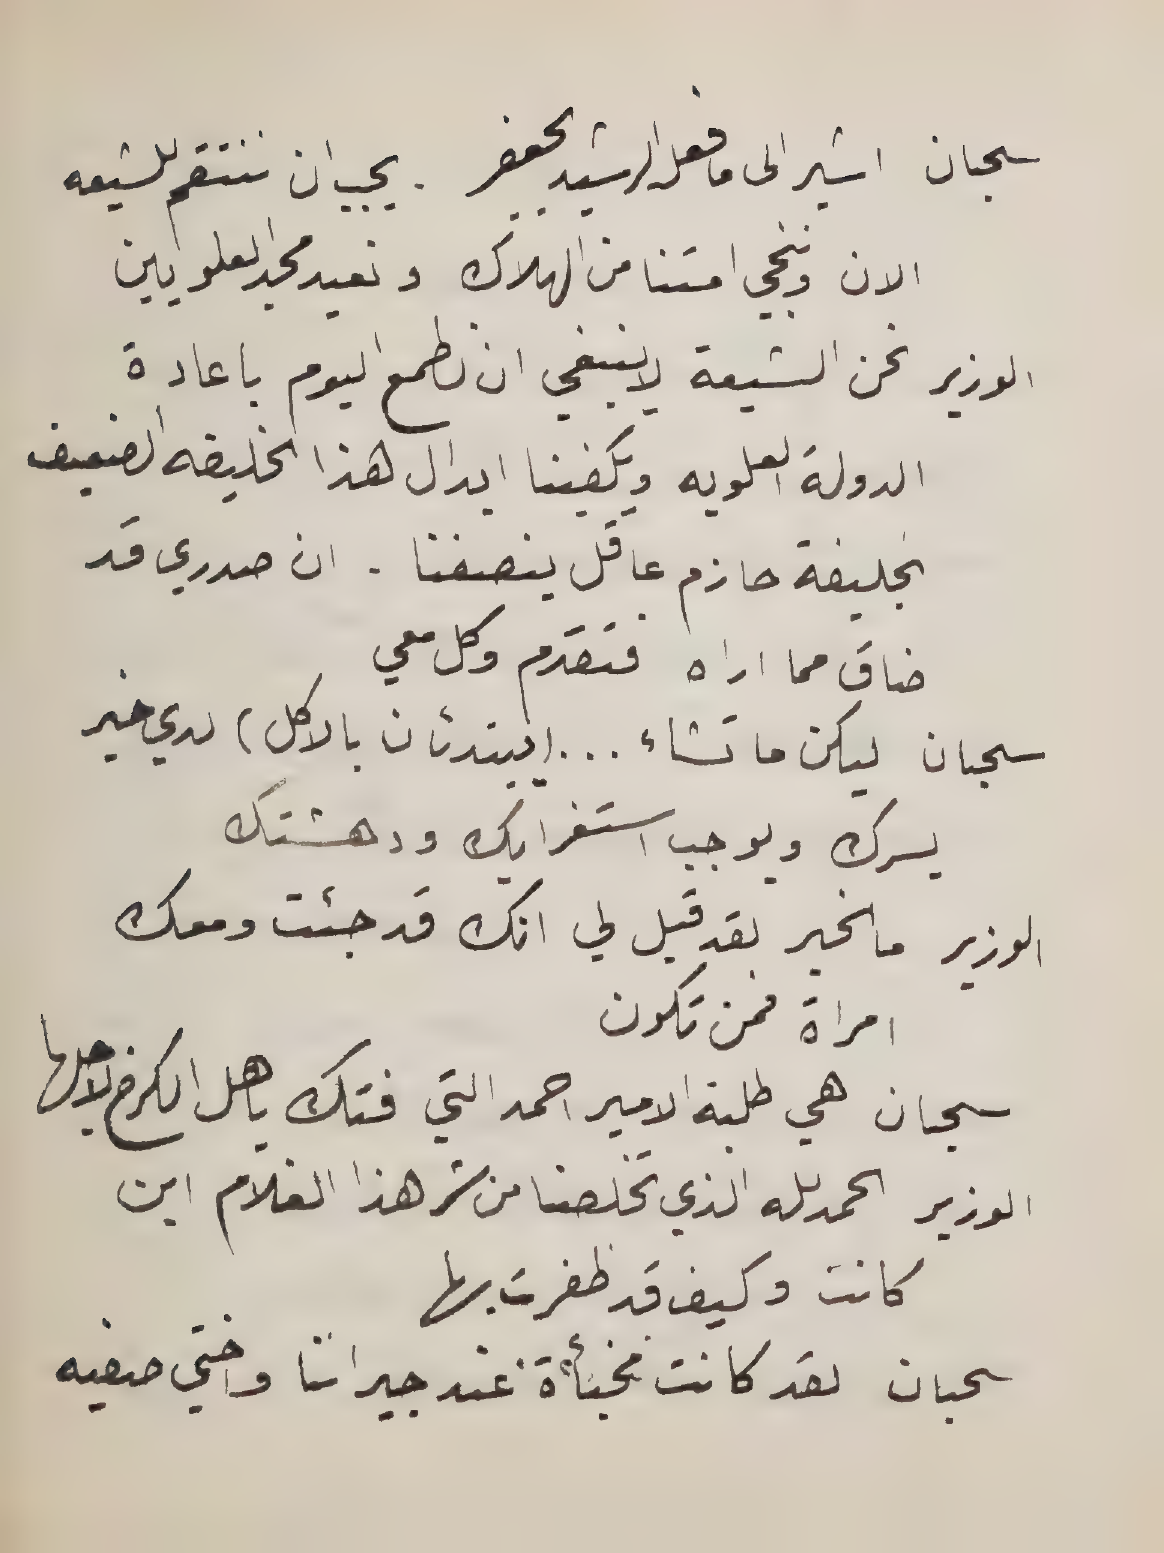 سحبان اشير الى ما فعل الرشيد بجعفر . يجب ان ننتقم للشيعه
الان وننجي امتنا من الهلاك ونعيد مجد العلويين
الوزير نحن الشيعة لا ينبغي ان نطمع اليوم باعادة
الدولة العلويه ويكفينا ابدال هذا الخليفه الضعيف
بخليفة حازم عاقل ينصفنا . ان صدري قد
ضاق مما اراه فتقدم وكل معي
سحبان ليكن ما تشاء ... (يبتدئان بالاكل) لدي خبر
يسرك ويوجب استغرابك ودهشتك
الوزير ما الخبر لقد قيل لي انك قد جئت ومعك
امراة فمن تكون
سحبان هي طلبة الامير احمد التي فتك باهل الكرخ لاجلها
الوزير الحمد لله الذي تخلصنا من شر هذا الغلام اين
كانت وكيف قد ظفرت بها
سحبان لقد كانت مخبأة عند جيراننا واختي صفيه